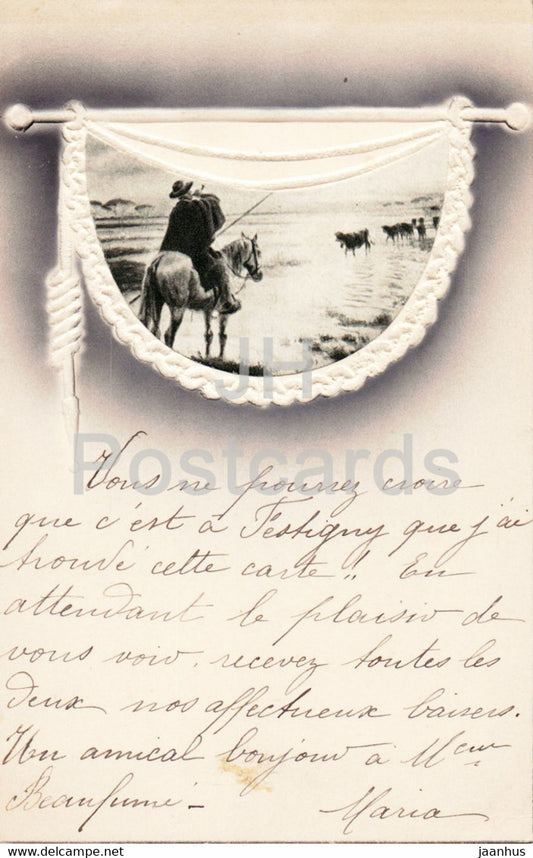 JH
Postcards
Vous ne pourrez croire
que c'est à Festigny que j'ai
trouvé cette carte !! En
attendant le plaisir de
vous voir, recevez toutes les
deux nos affectueux baisers.
Un amical bonjour à Meur
Beaufumé –
Maria
www.hippostcard.com
jaanhus